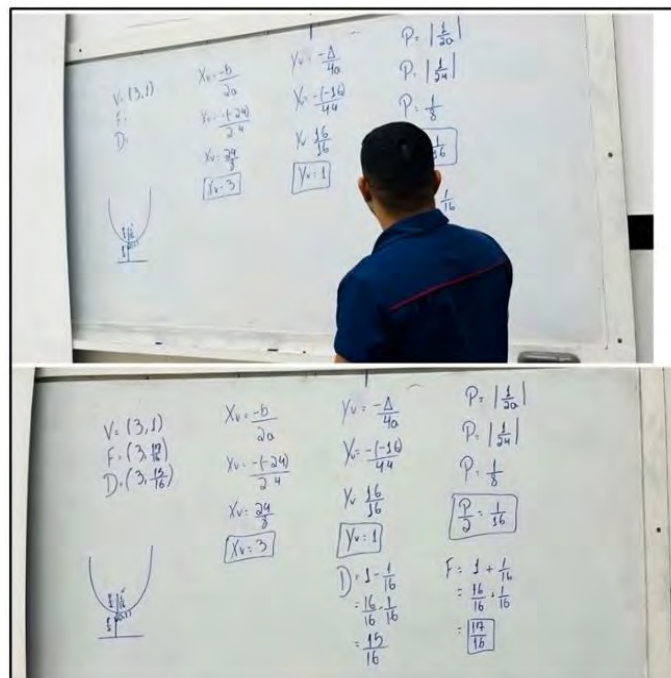 V = (3,1)
F =
D =
Xv = -b/2a
Xv = -(-24)/2·4
Xv = 24/8
Xv = 3
Yv = -Δ/4a
Yv = -(-16)/4·4
Yv 16/16
Yv = 1
P = |1/2a|
P = |1/2·4|
P = 1/8
1/16
1/16
V = (3,1)
F = (3, 17/16)
D = (3, 15/16)
Xv = -b/2a
Xv = -(-24)/2·4
Xv = 24/8
Xv = 3
Yv = -Δ/4a
Yv = -(-16)/4·4
Yv 16/16
Yv = 1
D = 1 - 1/16
= 16/16 - 1/16
= 15/16
P = |1/2a|
P = |1/2·4|
P = 1/8
P/2 = 1/16
F = 1 + 1/16
= 16/16 + 1/16
= 17/16